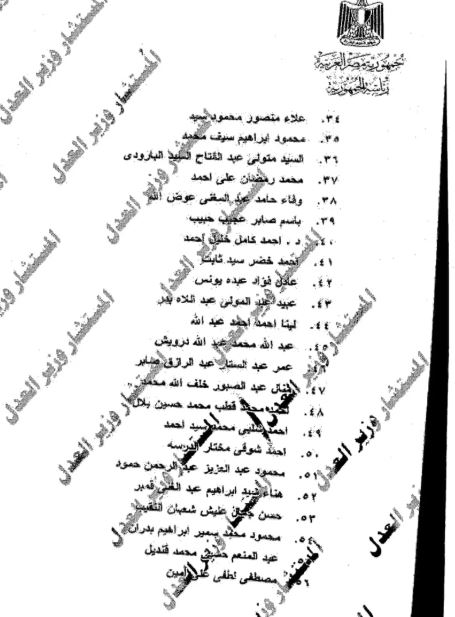 جمهورية مصر العربية
رئاسة الجمهورية
٣٤. علاء منصور محمود سيد
٣٥. محمود ابراهيم سيف محمد
٣٦. السيد متولى عبد الفتاح السيد البارودى
٣٧. محمد رمضان على احمد
٣٨. وفاء حامد عبد المغنى عوض الله
٣٩. باسم صابر عجيب حبيب
٤٠. د. احمد كامل خليل احمد
٤١. احمد خضر سيد ثابت
٤٢. عادل فؤاد عبده يونس
٤٣. عبيد عبد المولى عبد اللاه
٤٤. لينا احمد احمد عبد الله
٤٥. عبد الله محمد عبد الله درويش
٤٦. عمر عبد الستار عبد الرازق صابر
٤٧. عبد الصبور خلف الله محمد
٤٨. محمد قطب محمد حسين بلال
٤٩. احمد محمد سيد احمد
٥٠. احمد شوقى مختار
٥١. محمود عبد العزيز عبد الرحمن حمود
٥٢. هناء سيد ابراهيم عبد الغنى قمبر
٥٣. حسن عليش شعبان النقيب
٥٤. محمود محمد سمير ابراهيم بدران
عبد المنعم محمد قنديل
٥٦ مصطفى لطفى على امين
المستشار وزير العدل
المستشار وزير العدل
المستشار وزير العدل
المستشار وزير العدل
المستشار وزير العدل
المستشار وزير العدل
المستشار وزير العدل
المستشار وزير العدل